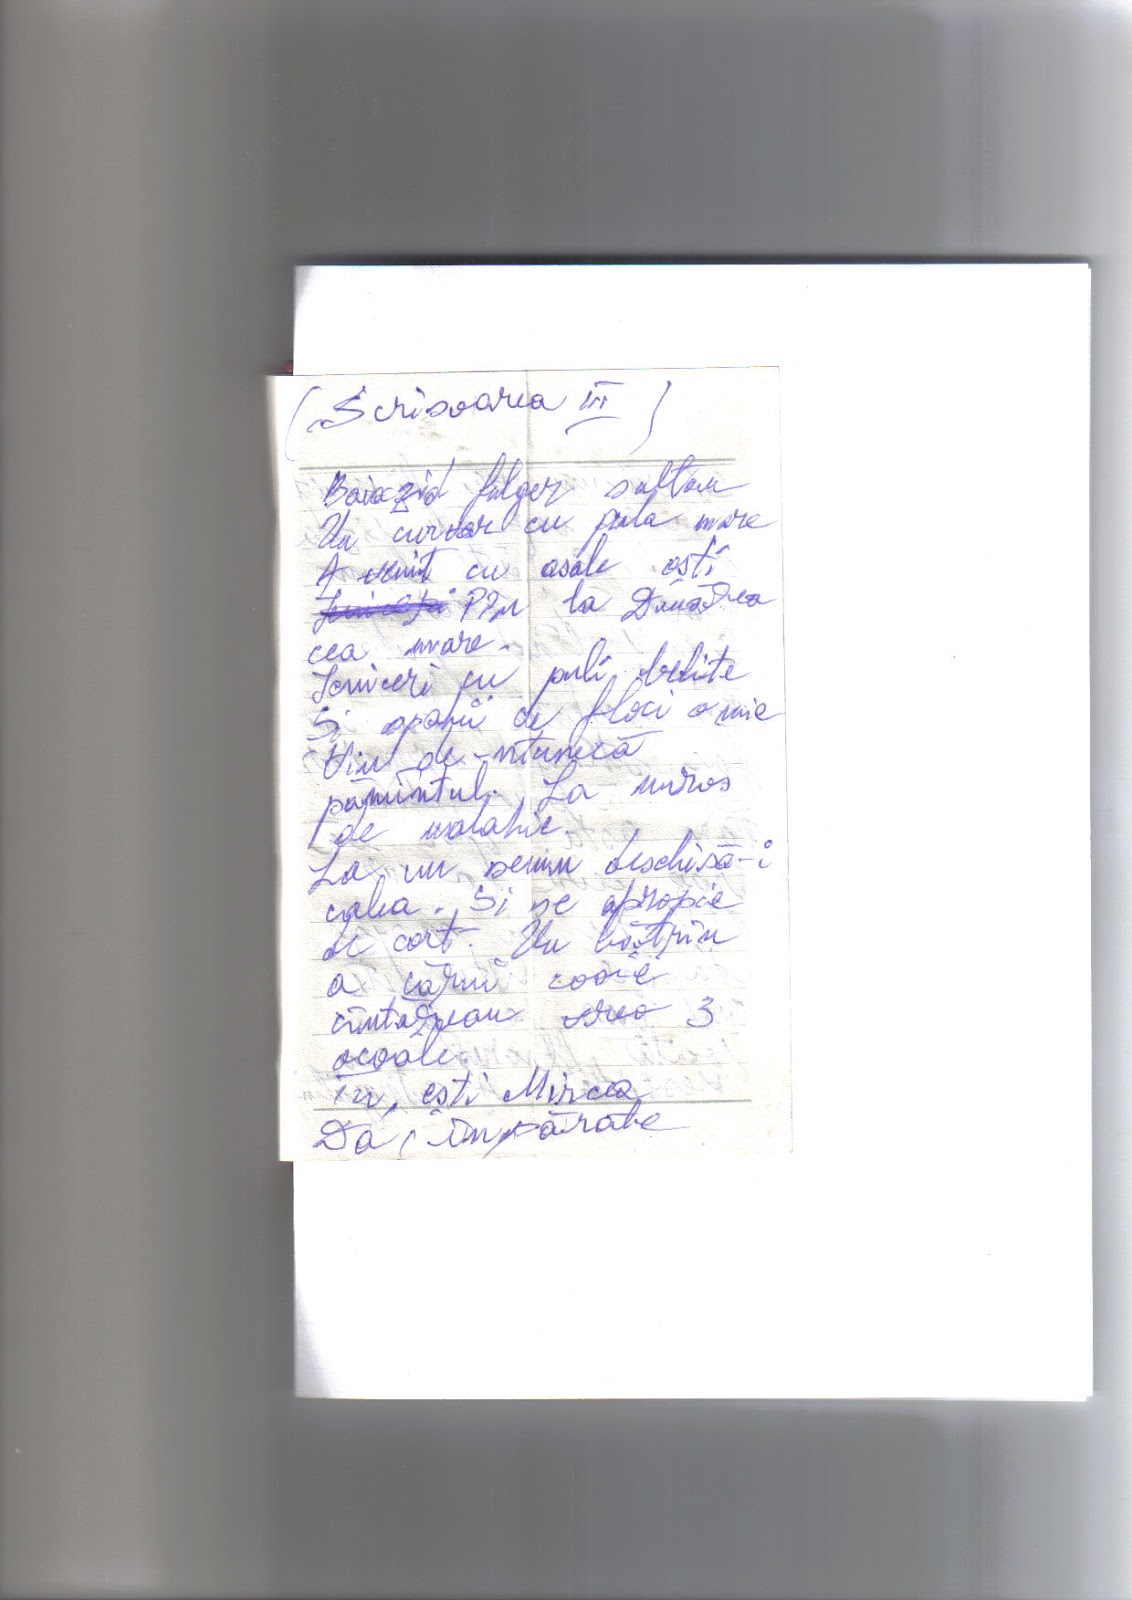 (Scrisoarea III)
Baiazid fulger sultan
Un curvar cu pula mare
A venit cu asale osti
la Dunărea
cea mare.
Ieniceri cu puli belite
Si spahii de floci o mie
Vin de-ntunecă
pămîntul. La miros
de malahie.
La un semn deschisă-i
calea. Si se apropie
de cort. Un bătrîn
a cărui coaie
cîntăreau vreo 3
ocoale.
Tu, esti Mircea
Da, împărate